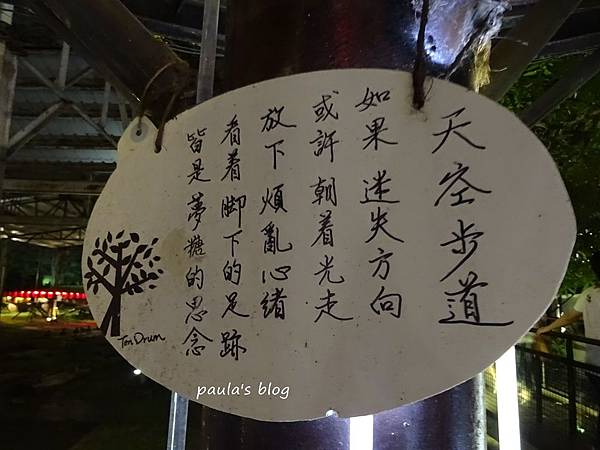 天空步道
如果迷失方向
或許朝着光走
放下煩亂心緒
看着脚下的足跡
皆是夢糖的思念
Ton Drum
paula's blog